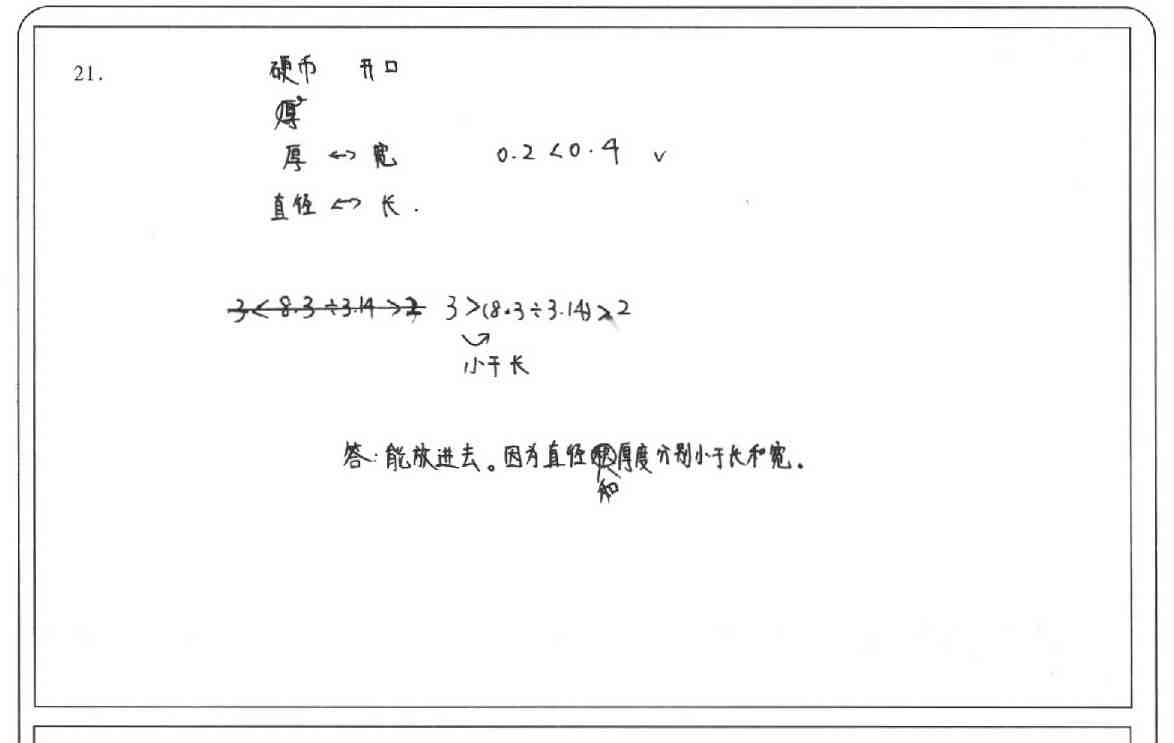 21. 硬币 开口
厚 ↔ 宽 0.2<0.4 ✓
直径 ↔ 长.
3<8.3÷3.14>2 3>(8.3÷3.14)>2
小于长
答:能放进去。因为直径和厚度分别小于长和宽。